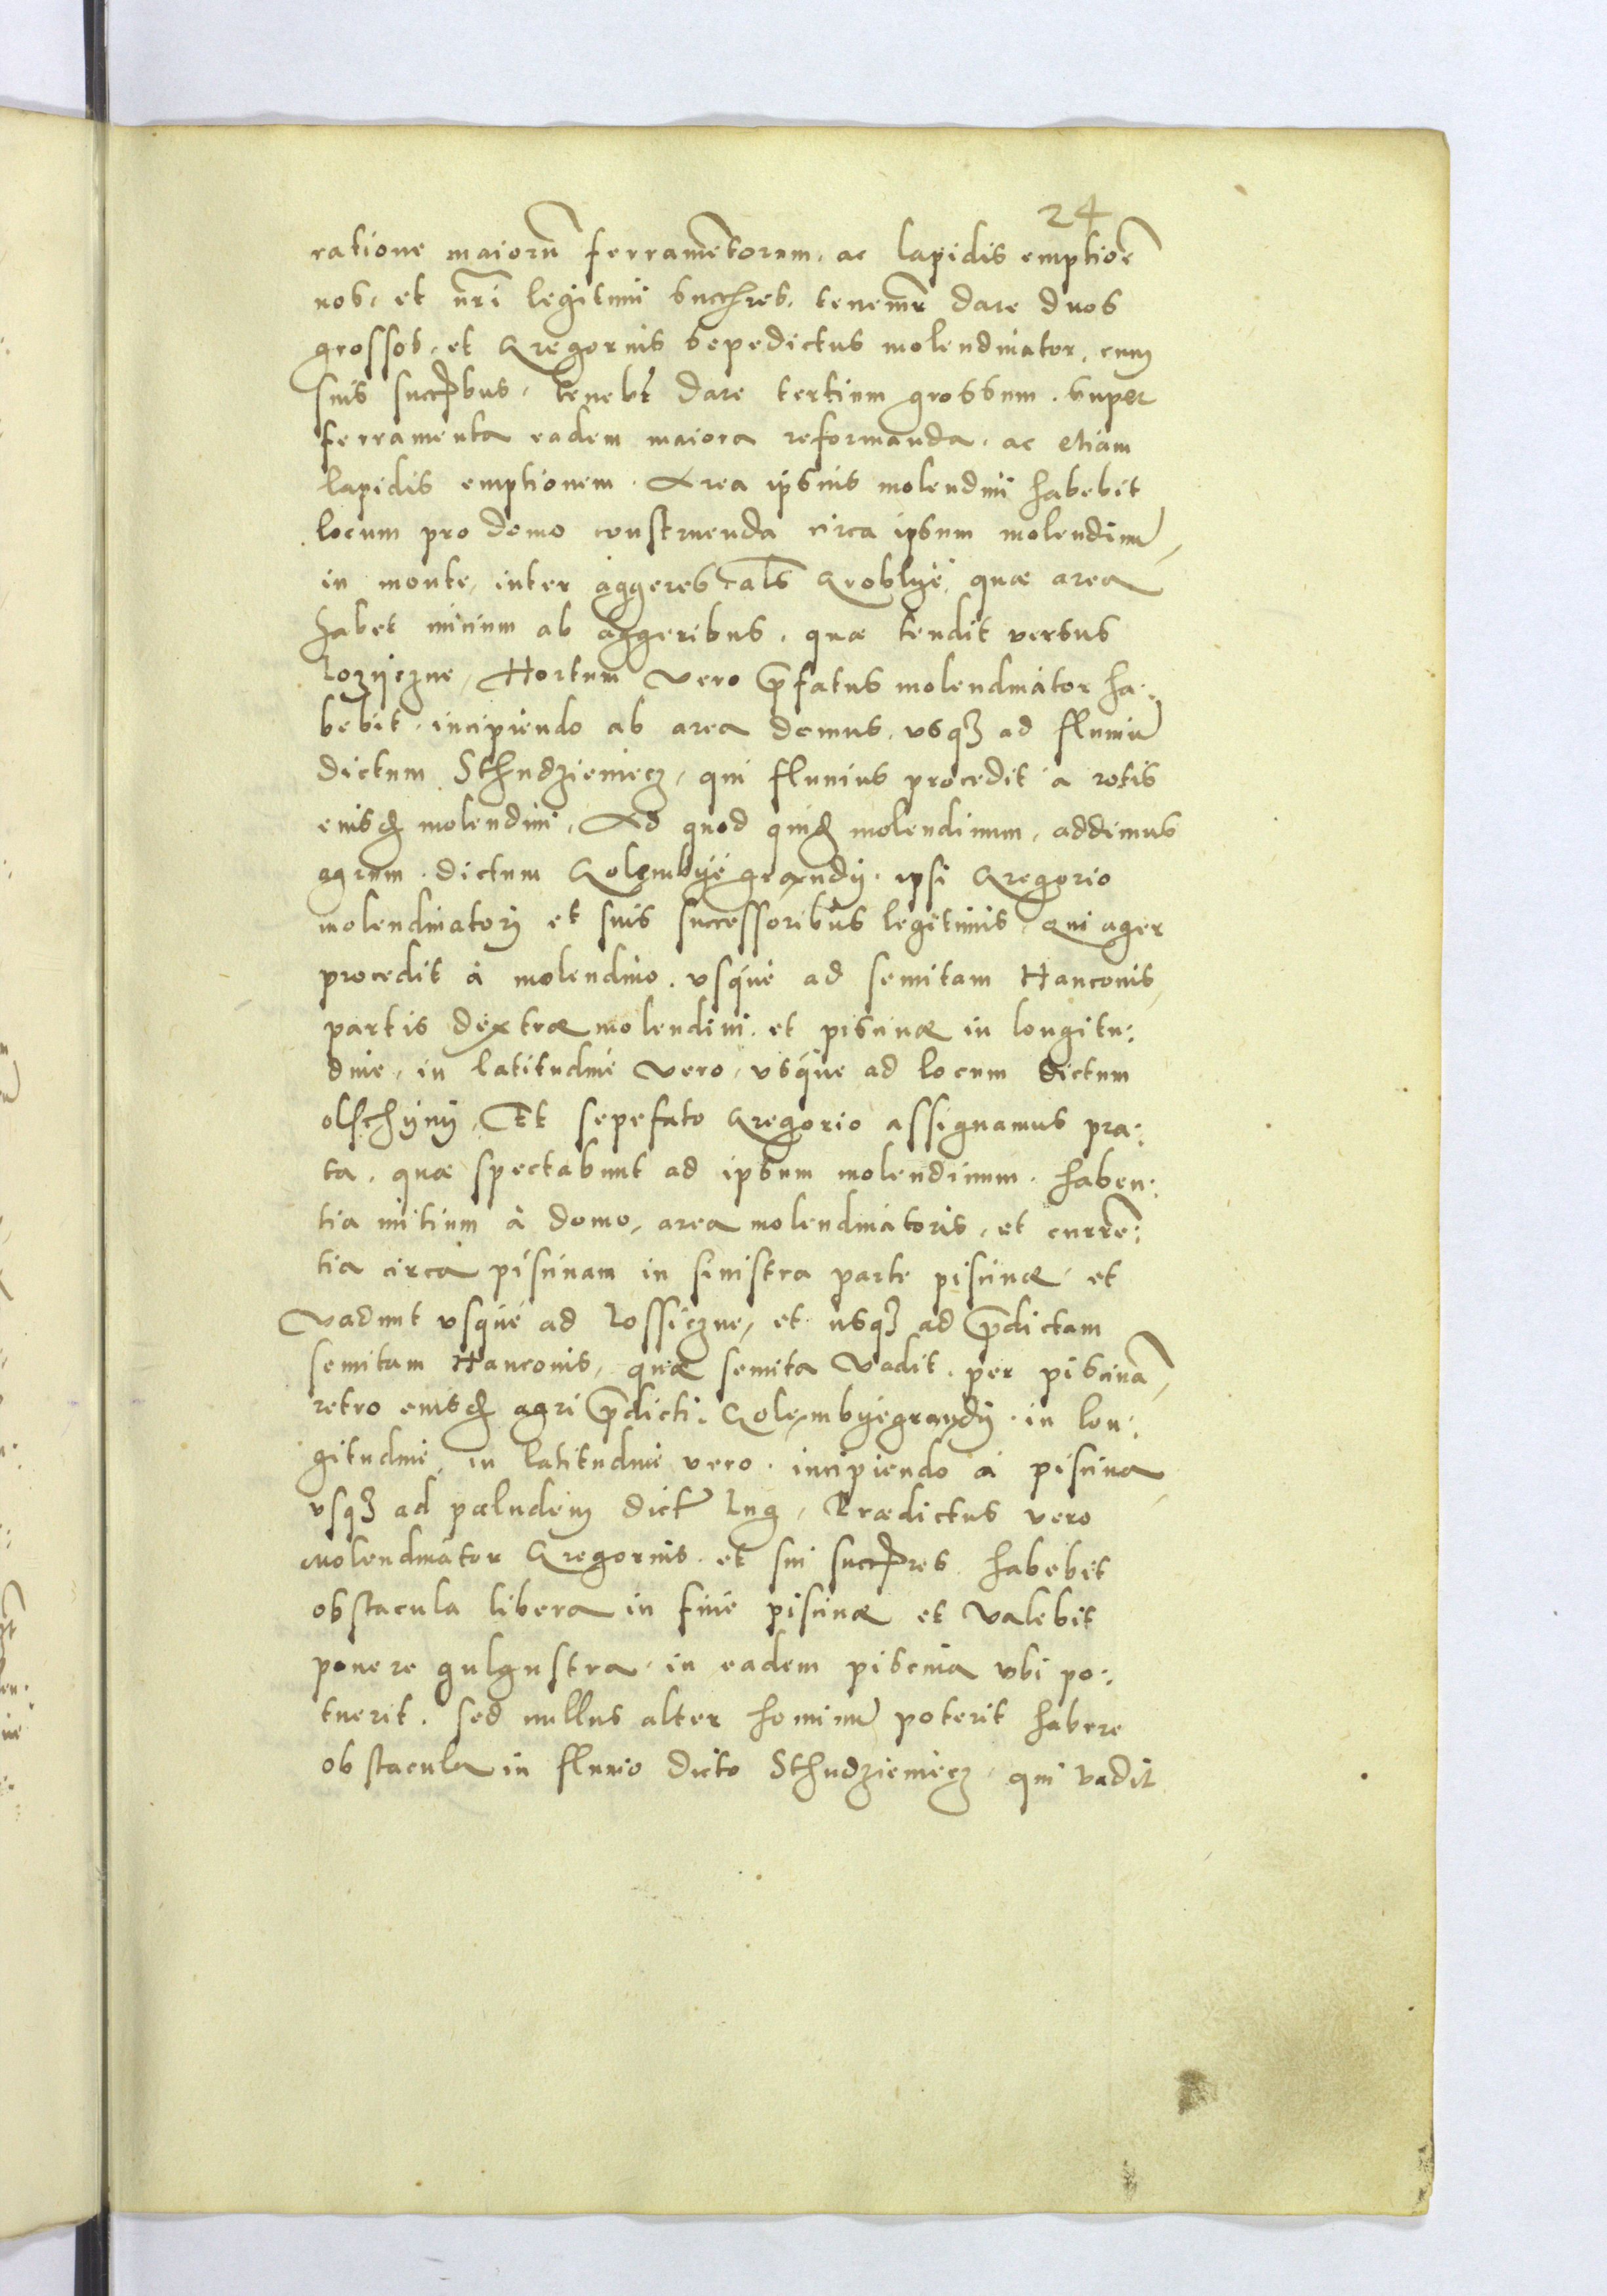 24
ratione maiorũ ferramẽtorum, ac lapidis emptiõẽ
nos, et nr̃i legitimi succr̃es, tenemr̃ dare duos
grossos, et Gregorius sepedictus molendinator, cum
suis succr̃bus, tenebr̃ dare tertium grossum, super
ferramenta eadem maiora reformanda, ac etiam
lapidis emptionem. Area ipsius molendini habebit
locum pro domo construenda circa ipsum molendinũ,
in monte, inter aggeres als̃ Groblye, quæ area
habet initium ab aggeribus, quæ tendit versus
Rozyczne, Hortum vero p̃fatus molendinator ha:
bebit, incipiendo ab area domus, vsqȝ ad fluuiũ
dictum Sthudzieniecz, qui fluuius procedit à rotis
eiusdẽ molendini, Ad quod quidẽ molendinum, addimus
agrum dictum Golembye grandy, ipsi Gregorio
molendinatorj et suis successoribus legitimis, Qui ager
procedit à molendino, vsque ad semitam Hanconis,
partis dextræ molendini et piscinæ in longitu:
dine, in latitudine vero, vsque ad locum dictum
olschyny, Et sepefato Gregorio assignamus pra:
ta, quæ spectabunt ad ipsum molendinum, haben:
tia initium à domo, area molendinatoris, et currẽ:
tia circa piscinam in sinistra parte piscinæ, et
vadunt vsque ad Rossiczne, et usqȝ ad p̃dictam
semitam Hanconis, quæ semita vadit, per piscinã,
retro eiusdẽ agri p̃dicti, Golembyegrandy, in lon:
gitudine, in latitudine vero, incipiendo à piscina,
vsqȝ ad paludem dictũ Lug, Prædictus vero
Molendinator Gregorius, et sui succr̃es habebit
obstacula libera in fine piscinæ et valebit
ponere gulgustra, in eadem piscina vbi po:
tuerit, sed nullus alter hominũ poterit habere
obstacula in fluuio dicto Sthudzieniecz, qui vadit